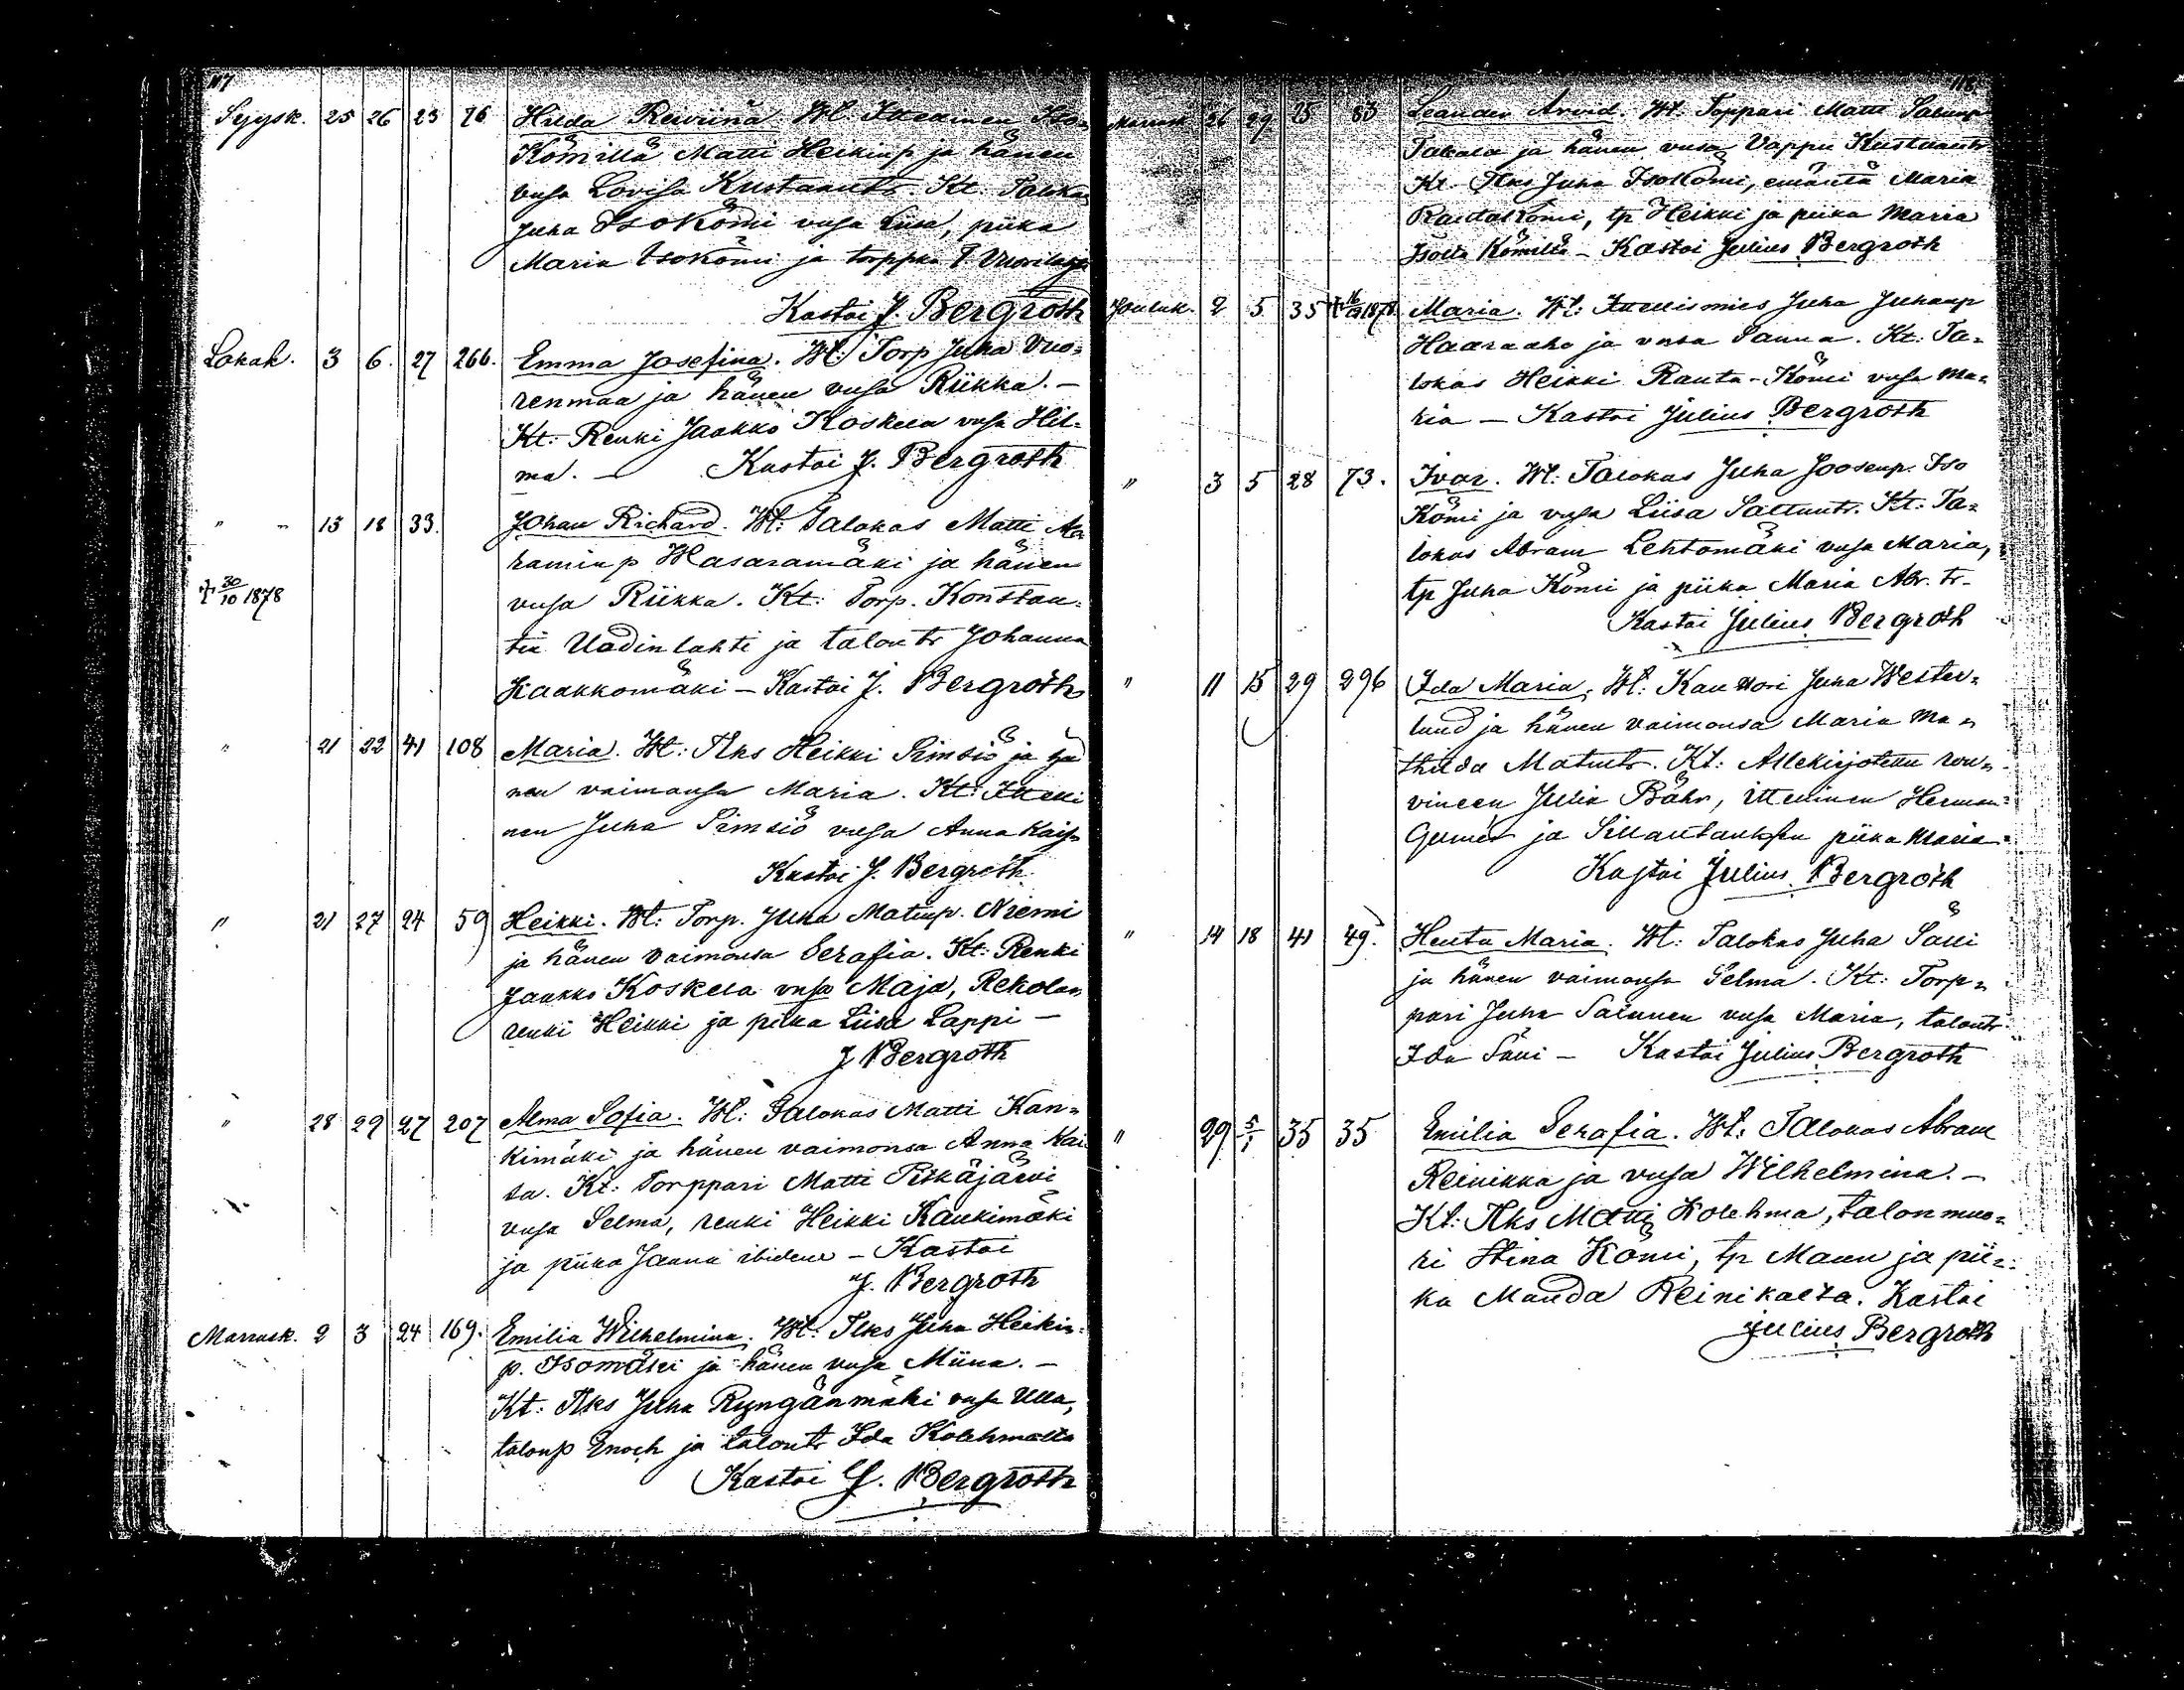 117
Syysk. 25 26 23 76 Hilda Reiviina Wl: Itteainen Iso-
Kömillä Matti Heikinp ja hänen
vnsa Lovisa Kustaantr Kt. Talokas
Juha Isokömi vnsa Liisa, piika
Maria Isokömi ja torppar
Kastoi J. Bergroth
Lokak. 3 6. 27 266. Emma Josefina. Wl: Torp Juha Vuo-
renmaa ja hänen vnsa Riikka. —
Kt: Renki Jaakko Koskela vnsa Hil-
ma. — Kastoi J. Bergroth
" " 13 18 33. Johan Richard. Wl: Talokas Matti Ab-
ramin p Wasaramäki ja hänen
† 30/10 1878 vnsa Riikka. Kt: Torp. Konstan-
tin Uadinlahti ja talontr Johanna
Kaakkomäki — Kastoi J. Bergroth
" 21 22 41 108 Maria. Wl: Tlks Heikki Simsiö ja hä-
nen vaimonsa Maria. Kt: Itelli
nen Juha Simsiö vnsa Anna Kaisa
Kastoi J. Bergroth
" 21 27 24 59 Heikki. Wl: Torp. Juha Matinp. Niemi
ja hänen vaimonsa Serafia. Kt: Renki
Jaakko Koskela vnsa Maja, Rekolan
renki Heikki ja piika Liisa Lappi —
J Bergroth
" 28 29 27 207 Alma Sofia. Wl: Talokas Matti Kan-
kimäki ja hänen vaimonsa Anna Kai
sa. Kt: Torppari Matti Pitkäjärvi
vnsa Selma, renki Heikki Kankimäki
ja piika Sanna ibidem — Kastoi
J. Bergroth
Marrask. 2 3 24 169. Emilia Wilhelmina. Wl: Tlks Juha Heikin-
p. Isomäki ja hänen vnsa Miina. —
Kt: Tlks Juha Ryngänmäki vnsa Ulla,
talonp Enoch ja talontr Ida Kolehmalta
Kastoi J. Bergroth
118.
Marrask 26 29 25 83 Leander Arvid. Wl. Toppari Matti Salunp
Takala ja hänen vnsa Vappu Kustaantr
Kt. Tlks Juha Isokömi, emäntä Maria
Rautakömi, tp Heikki ja piika Maria
Isolta Kömiltä — Kastoi Julius Bergroth
Jouluk. 2 5 35 Maria. Wl: Itellismies Juha Juhanp
Haaraaho ja vnsa Sanna. Kt: Ta-
lokas Heikki Rauta-Kömi vnsa Ma-
ria — Kastoi Julius Bergroth
" 3 5 28 73. Ivar. Wl: Talokas Juha Joosenp. Iso
Kömi ja vnsa Liisa Salluntr. Kt: Ta-
lokas Abram Lehtomäki vnsa Maria,
tp Juha Kömi ja piika Maria Abr. tr —
Kastoi Julius Bergroth
" 11 15 29 296 Ida Maria. Wl: Kanttori Juha Wester-
lund ja hänen vaimonsa Maria Ma-
thilda Matintr. Kt: Allekirjotettu rou-
vineen Julia Bähr, ittellinen Herman
Gumér ja Sillantauksen piika Maria
Kastoi Julius Bergroth
" 14 18 41 49. Henta Maria. Wl: Talokas Juha Salli
ja hänen vaimonsa Selma. Kt: Torp-
pari Juha Salunen vnsa Maria, talontr
Ida Salli — Kastoi Julius Bergroth
" 29 5/1 35 35 Emilia Serafia. Wl: Talokas Abram
Reinikka ja vnsa Wilhelmina. —
Kt: Tlks Matti Kolehma, talonmuo-
ri Stina Kömi, tp Manu ja pii-
ka Manda Reinikalta. Kastoi
Julius Bergroth